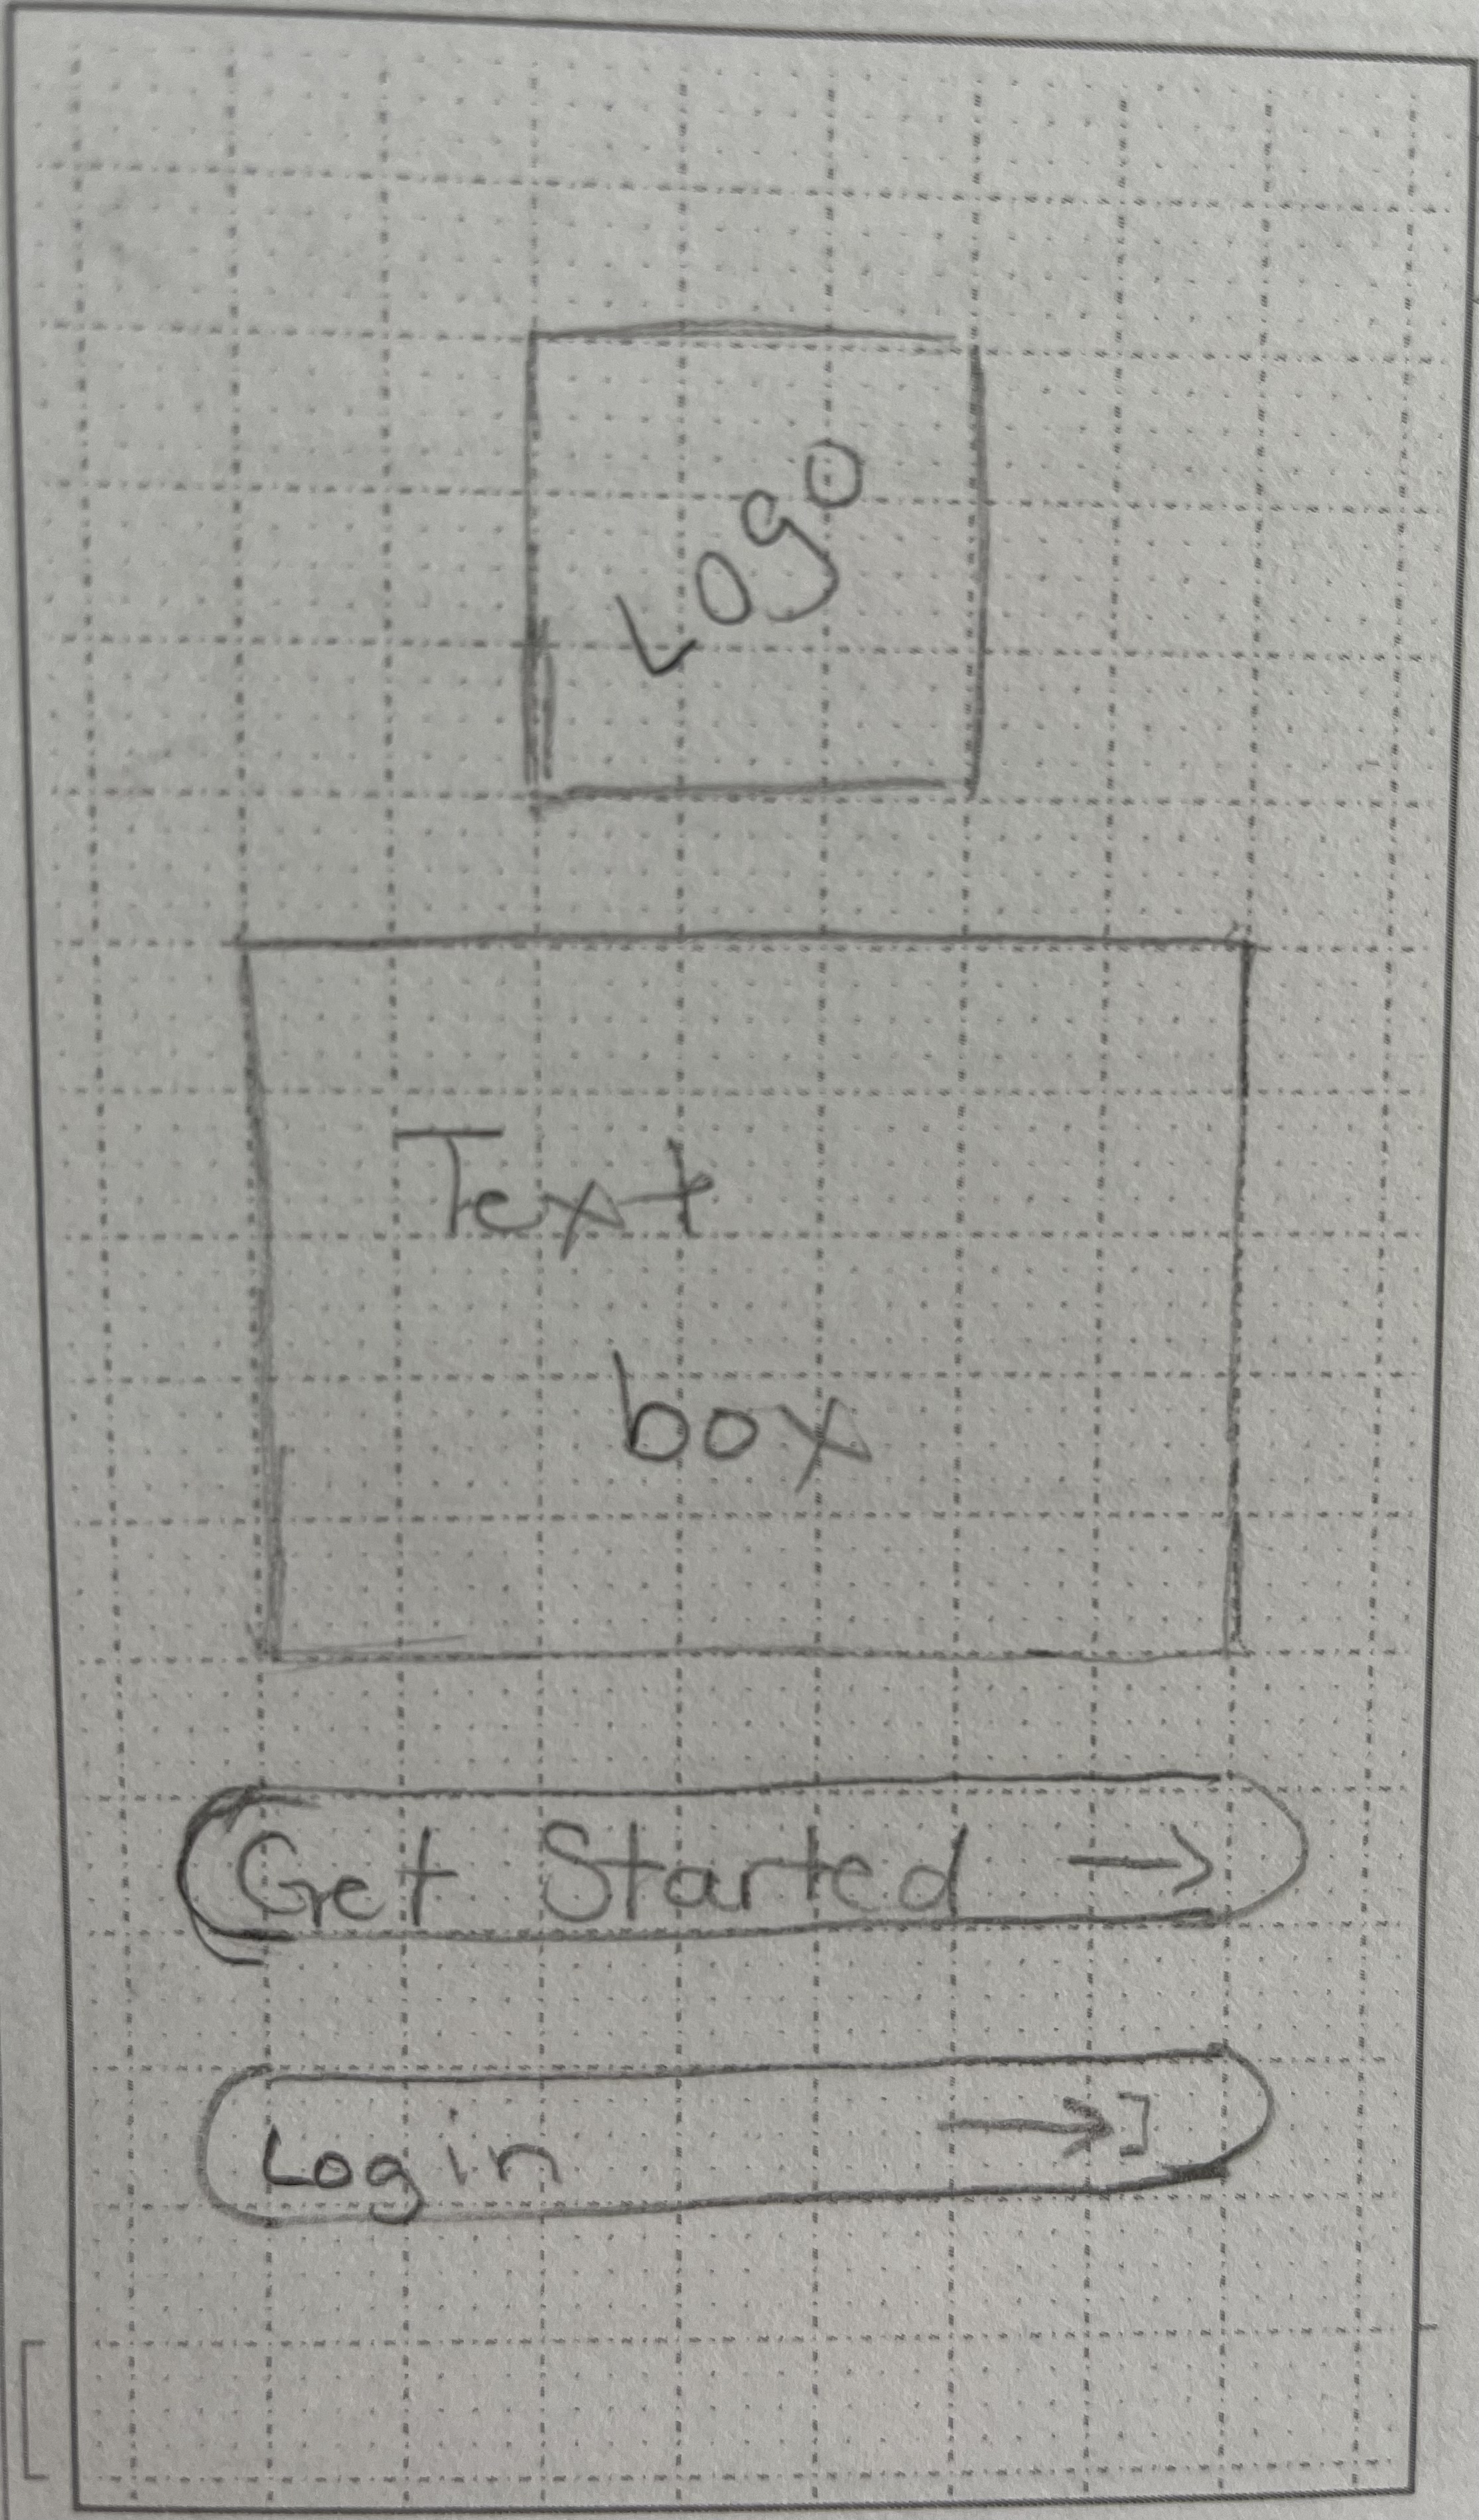 Logo
Text
box
Get Started →
Login →]